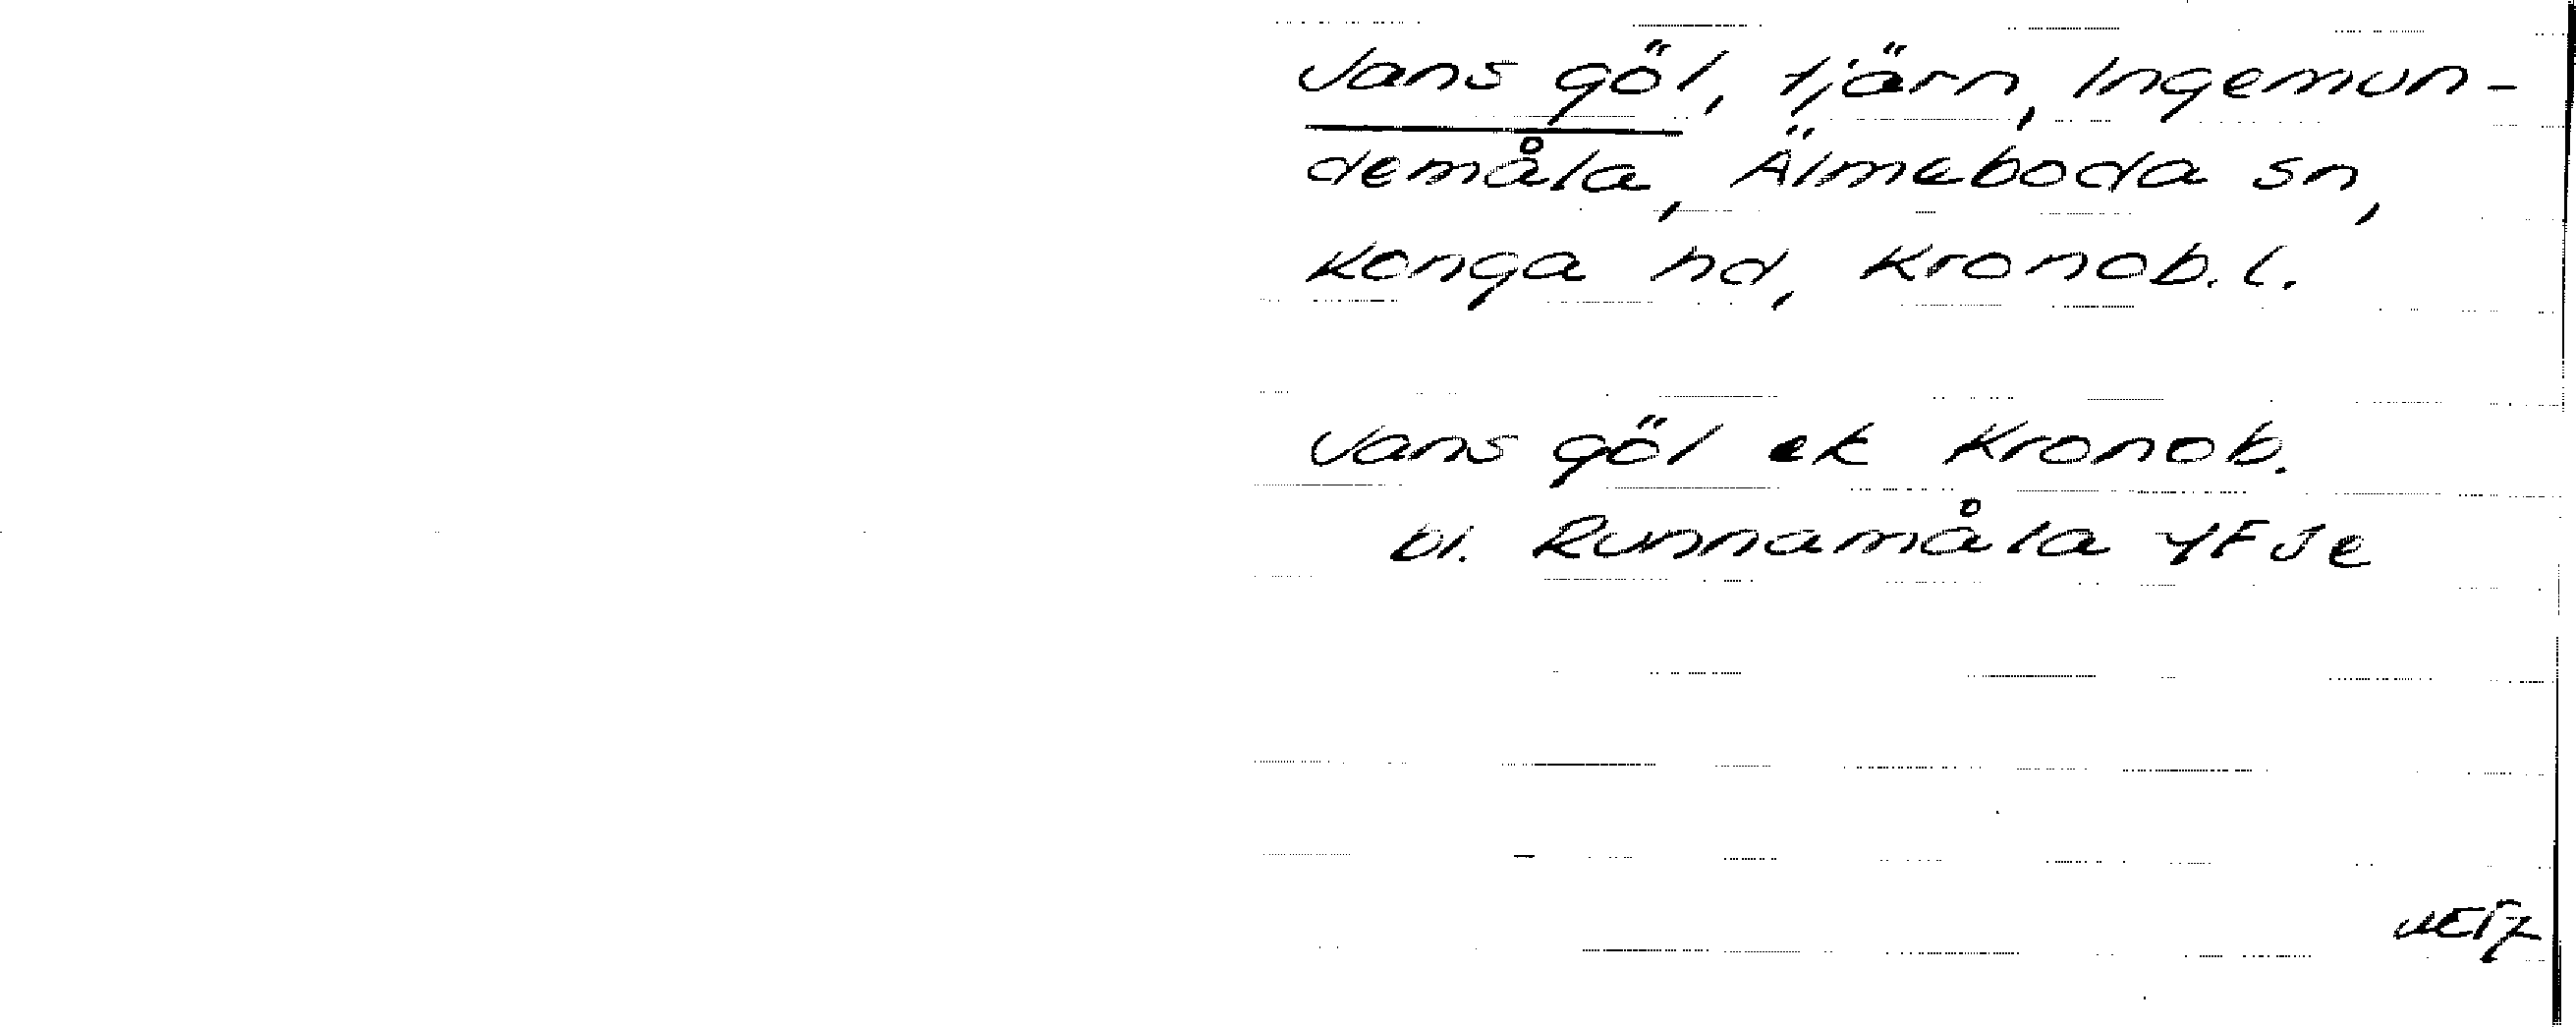 Jans göl, tjärn, Ingemun-
demåla, Älmeboda sn,
Konga hd, Kronob. l.
Jans göl ek Kronob.
bl. Runnamåla 4F Je